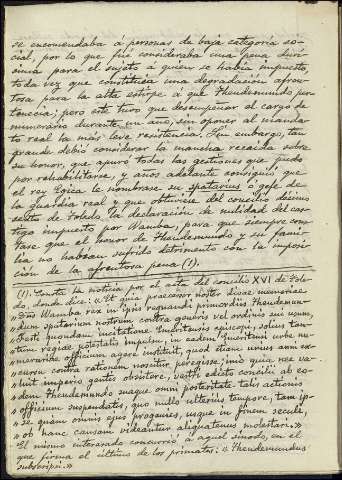 se encomendaba á personas de baja categoría so-
cial, por lo que fué considerada una pena durí-
sima para el sujeto á quien se había impuesto,
toda vez que constituía una degradación afren-
tosa para la alta estirpe á que Theudemundo per-
tenecía; pero éste tuvo que desempeñar el cargo de
numerario durante un año, sin oponer al manda-
to real la más leve resistencia. Sin embargo, tan
grande debió considerar la mancha recaída sobre
su honor, que apuró todas las gestiones que pudo
por rehabilitarse, y años adelante consiguió que
el rey Egica le nombrase su spatarius ó gefe de
la guardia real y que obtuviese del concilio décimo
sexto de Toledo, la declaración de nulidad del cas-
tigo impuesto por Wamba, para que siempre cons-
tase que el honor de Theudemundo y su fami-
lia no habían sufrido detrimento con la imposi-
ción de la afrentosa pena (1).
(1). Consta la noticia por el acta del concilio XVI de Tole-
do, donde dice: « Et quia praecessor noster divae memoriae
« dñus Wamba rex in ipsis regnandi primordiis Theudemun-
« dum spatarium nostrum contra generis vel ordinis sui usum,
« Festi quondam incitatione Emeritensis episcopi, solius tan-
« tum regiae potestatis impulsu, in eadem Emeritensi urbe nu-
« merariae officium agere instituit, quod etiam unius anni ex-
« cursu contra rationem nositur peregisse; imo quia nec va-
« luit imperio gantis obsistere, vestri edicto concilii ab eo-
« dem Theudemundo suaque omni posteritate talis actionis
« officium suspendatis, quo nullo ulterius tempore, tam ip-
« se quam omnis ejus progenies, usque in finem seculi,
« ob hanc causam videantur aliquatenus molestari. »
El mismo interesado concurrió á aquel sínodo, en el
que firma el último de los primates: « Theudemundus
subscripsi. »